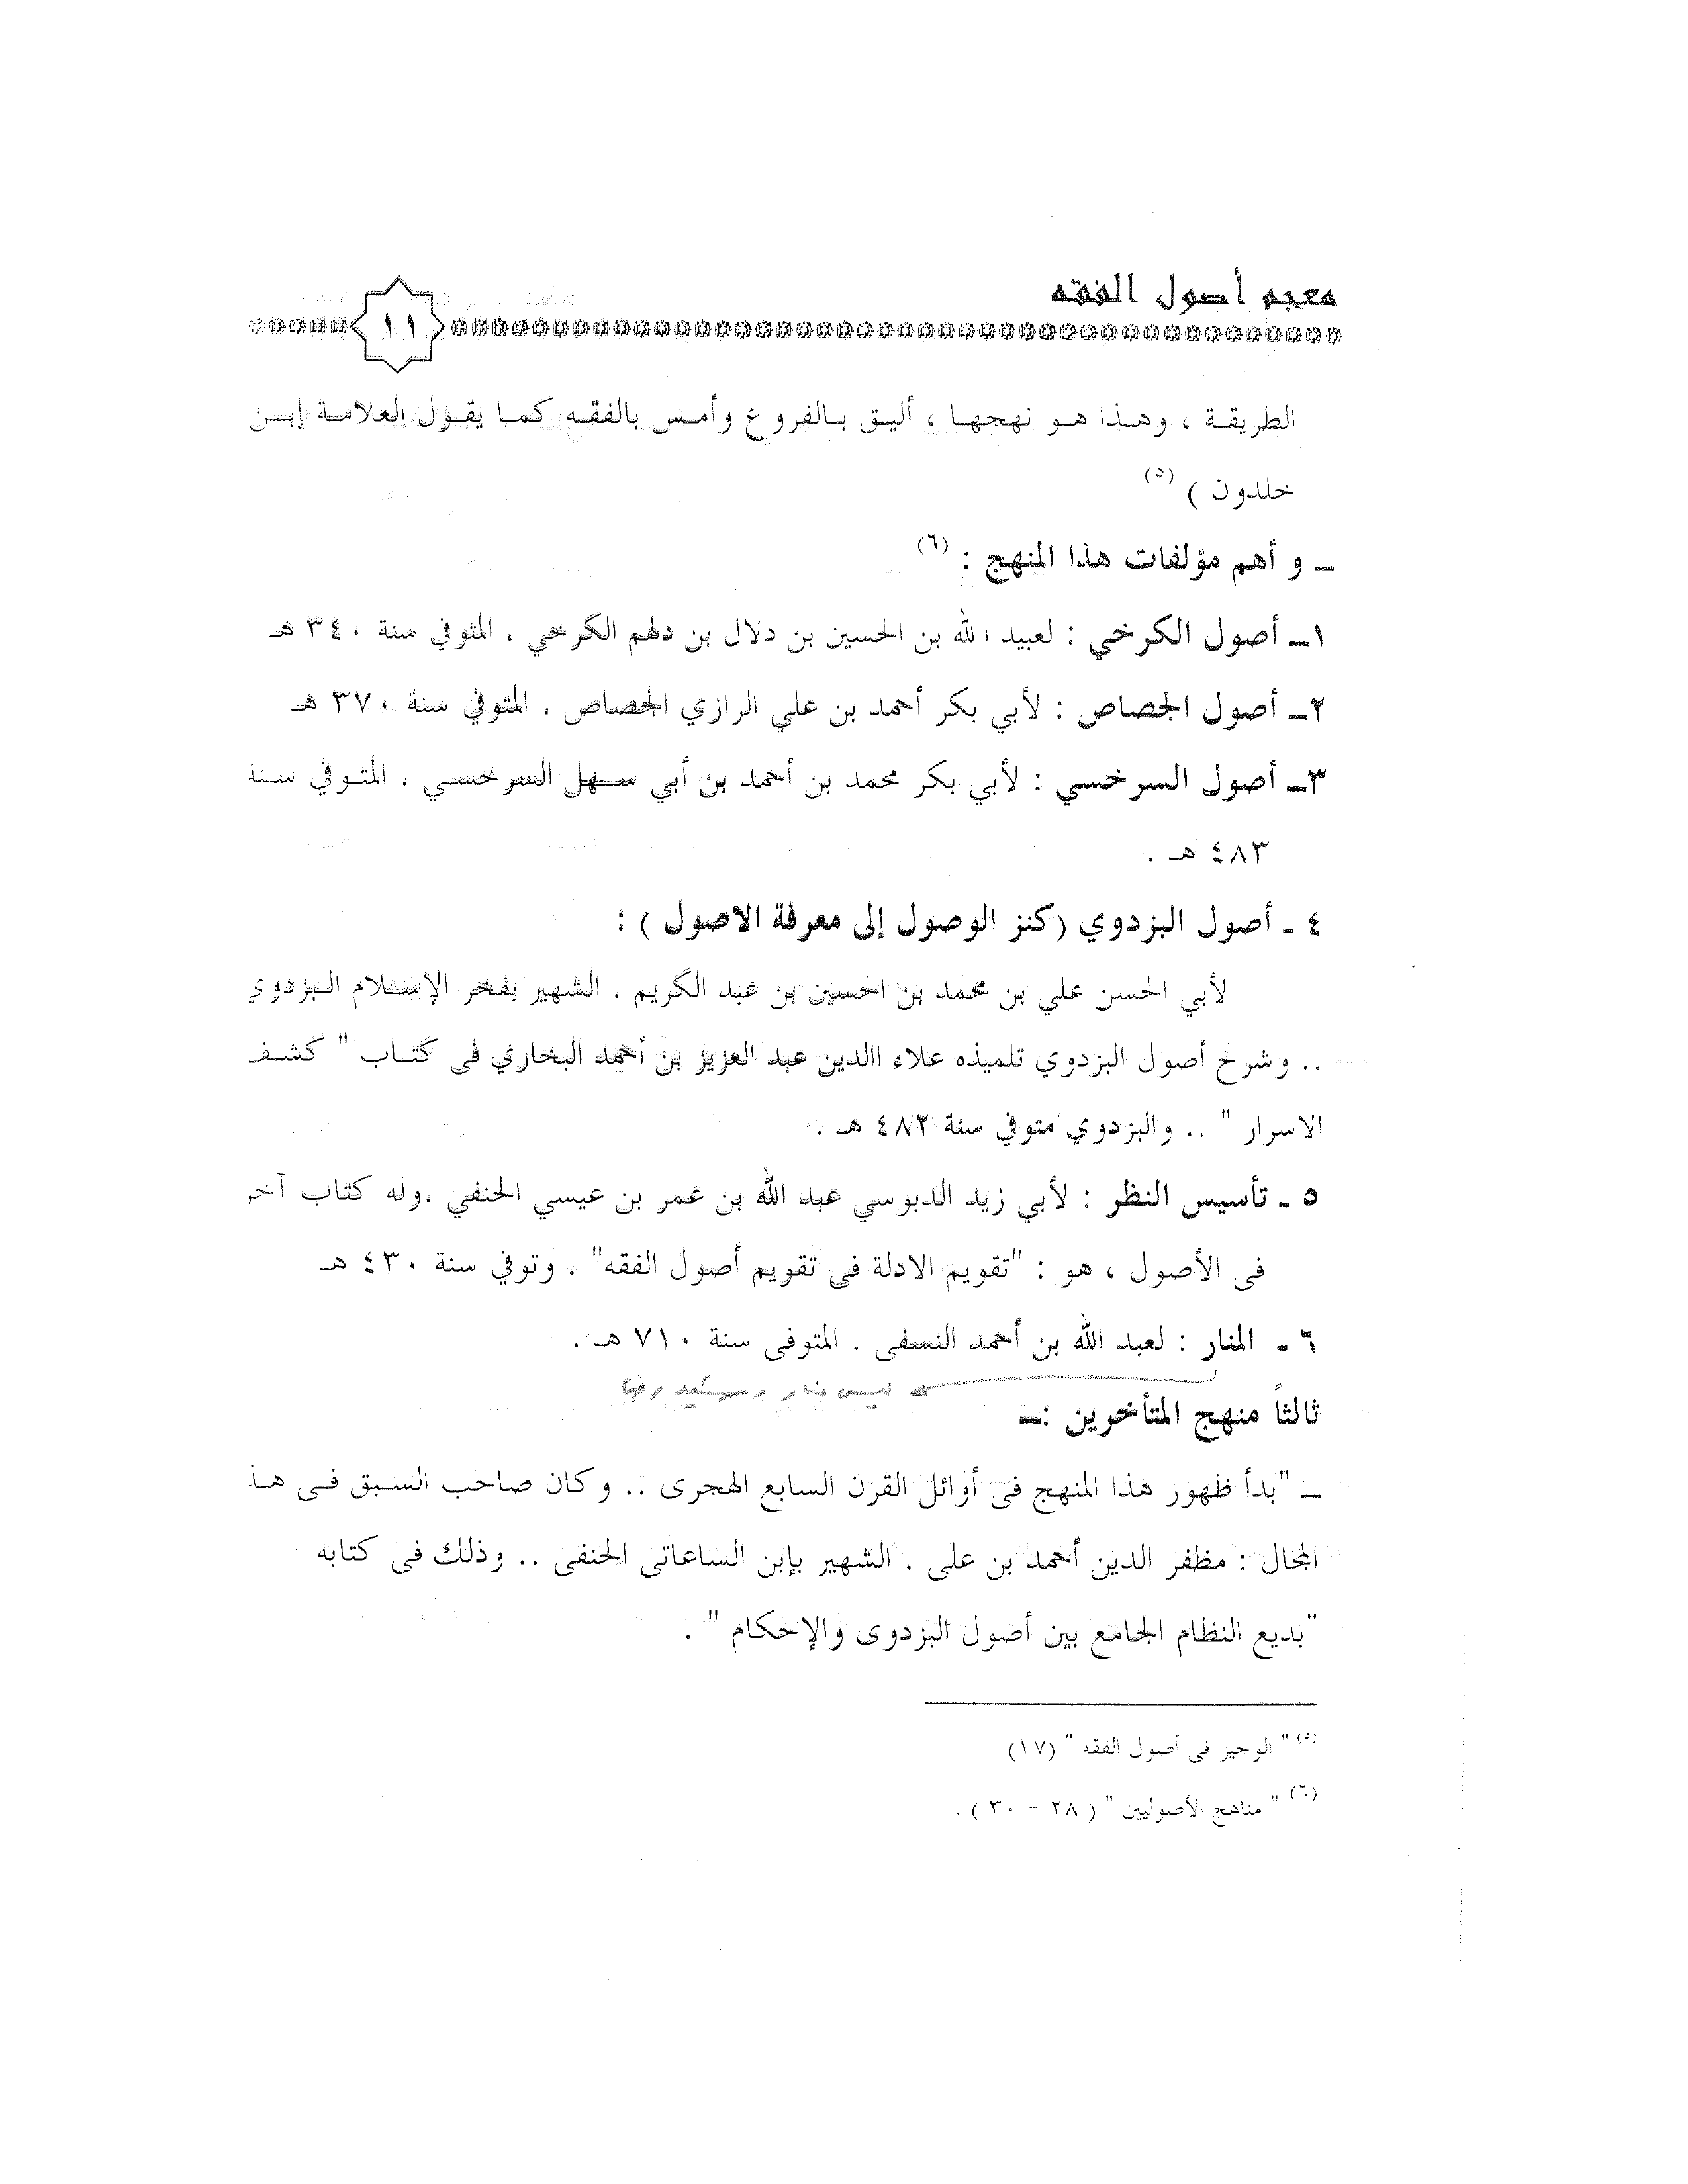 معجم أصول الفقه
١١
الطريقة ، وهذا هو نهجها ، أليق بالفروع وأمس بالفقه كما يقول العلامة إبن
خلدون ) (٥)
ــ و أهم مؤلفات هذا المنهج : (٦)
١ــ أصول الكرخي : لعبيد الله بن الحسين بن دلال بن دلهم الكرخي . المتوفي سنة ٣٤٠ هـ
٢ــ أصول الجصاص : لأبي بكر أحمد بن علي الرازي الجصاص . المتوفي سنة ٣٧٠ هـ
٣ــ أصول السرخسي : لأبي بكر محمد بن أحمد بن أبي سهل السرخسي . المتوفي سنة
٤٨٣ هـ .
٤ ـ أصول البزدوي (كنز الوصول إلى معرفة الاصول ) :
لأبي الحسن علي بن محمد بن الحسين بن عبد الكريم . الشهير بفخر الإسلام البزدوي
.. وشرح أصول البزدوي تلميذه علاء االدين عبد العزيز بن أحمد البخاري فى كتاب " كشف
الاسرار " .. والبزدوي متوفي سنة ٤٨٢ هـ .
٥ ـ تأسيس النظر : لأبي زيد الدبوسي عبد الله بن عمر بن عيسي الحنفي .وله كتاب آخر
فى الأصول ، هو : "تقويم الادلة في تقويم أصول الفقه" . وتوفي سنة ٤٣٠ هـ
٦ ـ المنار : لعبد الله بن أحمد النسفى . المتوفى سنة ٧١٠ هـ .
ليس منار
ثالثاً منهج المتأخرين :ــ
ــ "بدأ ظهور هذا المنهج فى أوائل القرن السابع الهجرى .. وكان صاحب السبق فى هذ
المجال : مظفر الدين أحمد بن على . الشهير بإبن الساعاتى الحنفى .. وذلك فى كتابه
"بديع النظام الجامع بين أصول البزدوى والإحكام " .
(٥) " الوجيز فى أصول الفقه " (١٧)
(٦) " مناهج الأصوليين " ( ٢٨ - ٣٠ ) .